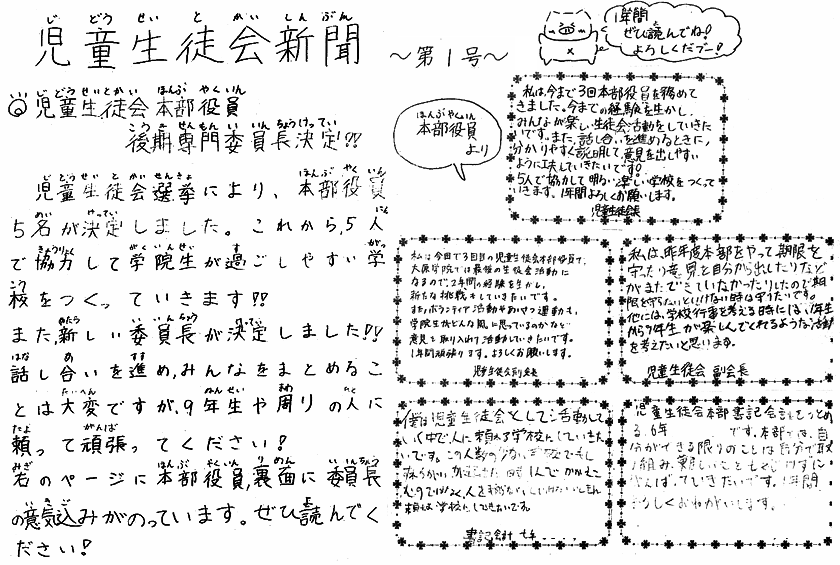 児童生徒会新聞 ～第1号～
1年間
ぜひ読んでね!
よろしくだブー!
◎児童生徒会本部役員
後期専門委員長決定?!
児童生徒会選挙により、本部役員
5名が決定しました。これから,5人
で協力して学院生が過ごしやすい学
校をつくっていきます!!
また,新しい委員長が決定しました!!
話し合いを進め,みんなをまとめるこ
とは大変ですが,9年生や周りの人に
頼って頑張ってください!
右のページに本部役員,裏面に委員長
の意気込みがのっています。ぜひ読んでく
ださい!
本部役員
より
私は今まで3回本部役員を務めて
きました。今までの経験を生かし、
みんなが楽しい生徒会活動をしていきた
いです。また、話し合いを進めるときに、
分かりやすく説明して、意見を出しやすい
ように工夫していきたいです。
5人で協力して明るい楽しい学校をつくって
いきます。1年間よろしくお願いします。
児童生徒会長
私は今回で3回目の児童生徒会本部役員で、
学院では最後の生徒会活動に
なるので、2年間の経験を生かし、
新たな挑戦をしていきたいです。
またボランティア活動やあいさつ運動も、
学院生がどんな風に思っているのかなど
意見を取り入れて活動していきたいです。
1年間頑張ります。よろしくお願いします。
児童生徒会副会長
私は、昨年度本部をやって期限を
守ったり意見を自分から出したりなど
がまだできていなかったりしたので期
限を守らないといけない時は守りたいです。
他には、学校行事を考える時には、1年生
から9年生が楽しんでくれるような活動
を考えたいと思います。
児童生徒会 副会長
僕は児童生徒会として活動して
いく中で人に頼れる学校にしていきた
いです。この人数の少ない学校でもし
時1人でかかえこ
むのではなく、人と
学校にしていきたいです。
書記会計 七年
児童生徒会本部書記会計をつとめ
る、6年 です。本部では、自
分ができる限りのことは自分で取
り組み、難しいことも
がんばっていきたいです。1年間
よろしくおねがいします。